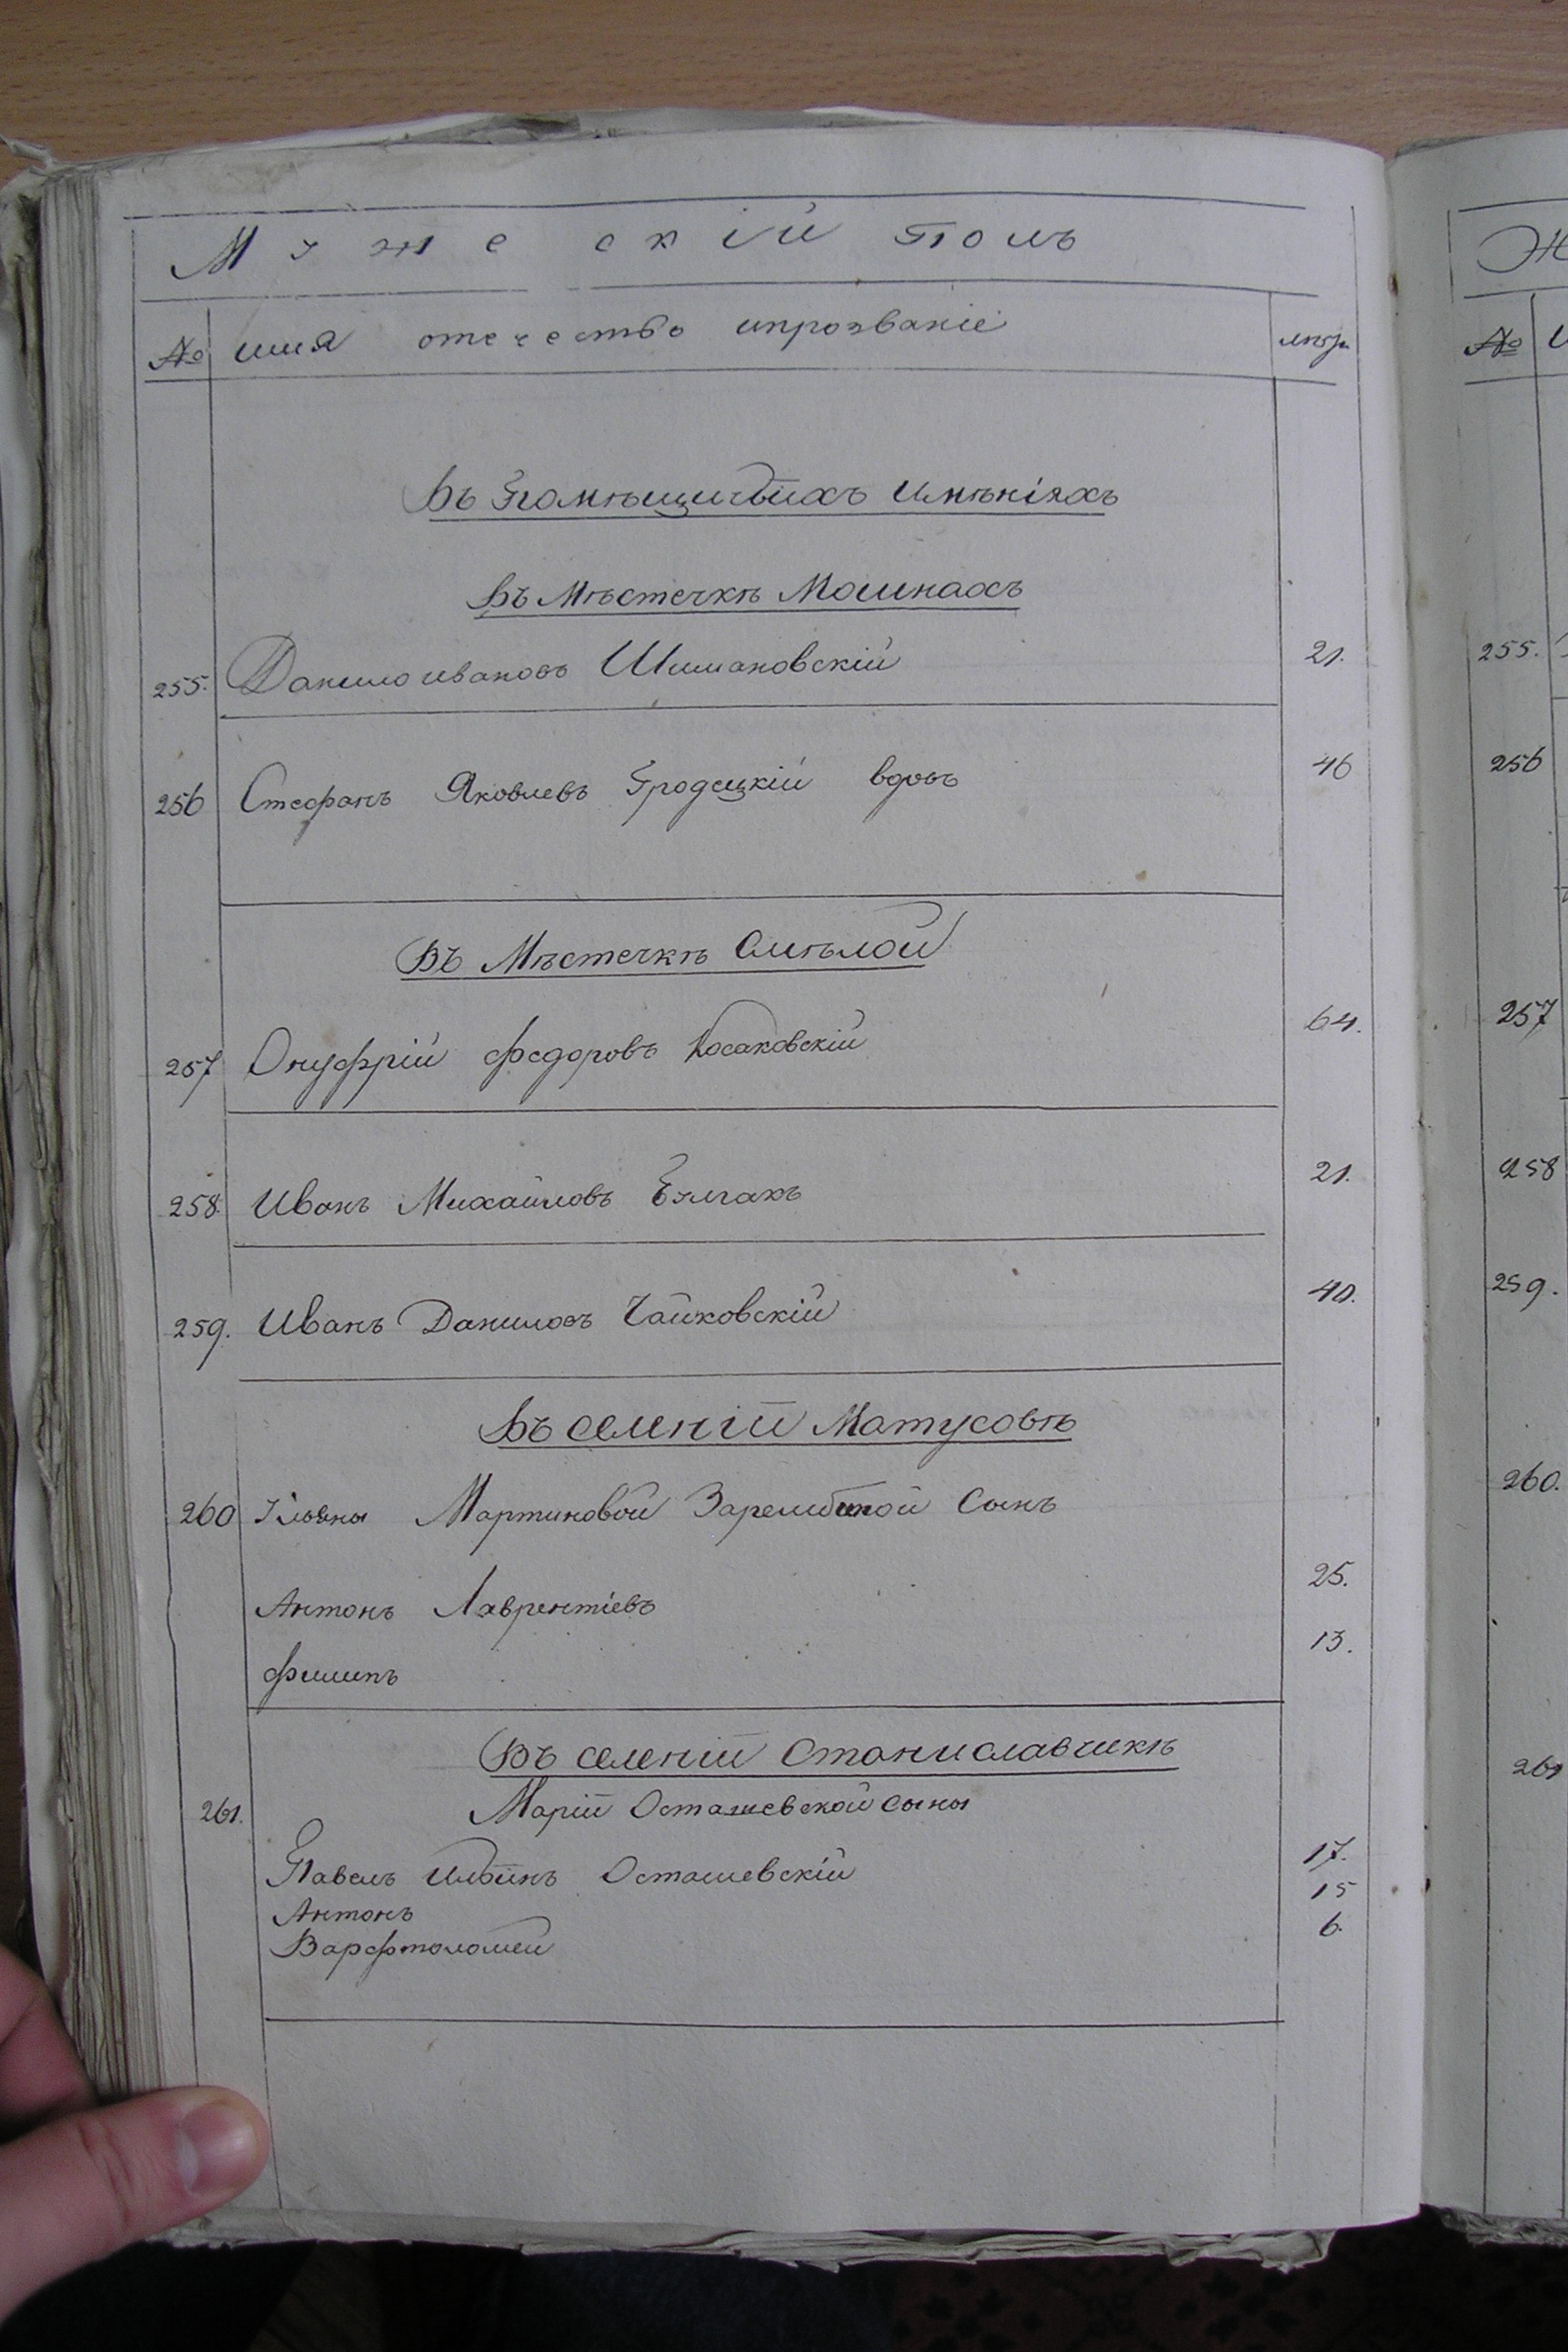 Мужескій полъ
№ имя отечество ипрозваніе лѣта
Въ Помѣщичьихъ Имѣніяхъ
Въ Мѣстечкѣ Мошнахъ
255. Данило ивановъ Шимановскій 21.
256 Стефанъ Яковлевъ Гродецкій вдовъ 46
Въ Мѣстечкѣ Смѣлой
257 Онуфрій федоровъ Косаковскій 64.
258. Иванъ Михайловъ 21.
259. Иванъ Даниловъ Чайковскій 40.
Въ селеніи Матусовѣ
260 Мартиновой Зарембиной Сынъ
Антонъ Лаврентіевъ 25.
филипъ 13.
Въ селеніи Станиславчикѣ
261. Маріи Осташевской сыны
Павелъ Ильинъ Осташевскій 17.
Антонъ 15
Варфтоломей 6.
Ж
№ и
255.
256
257
258
259.
260.
261